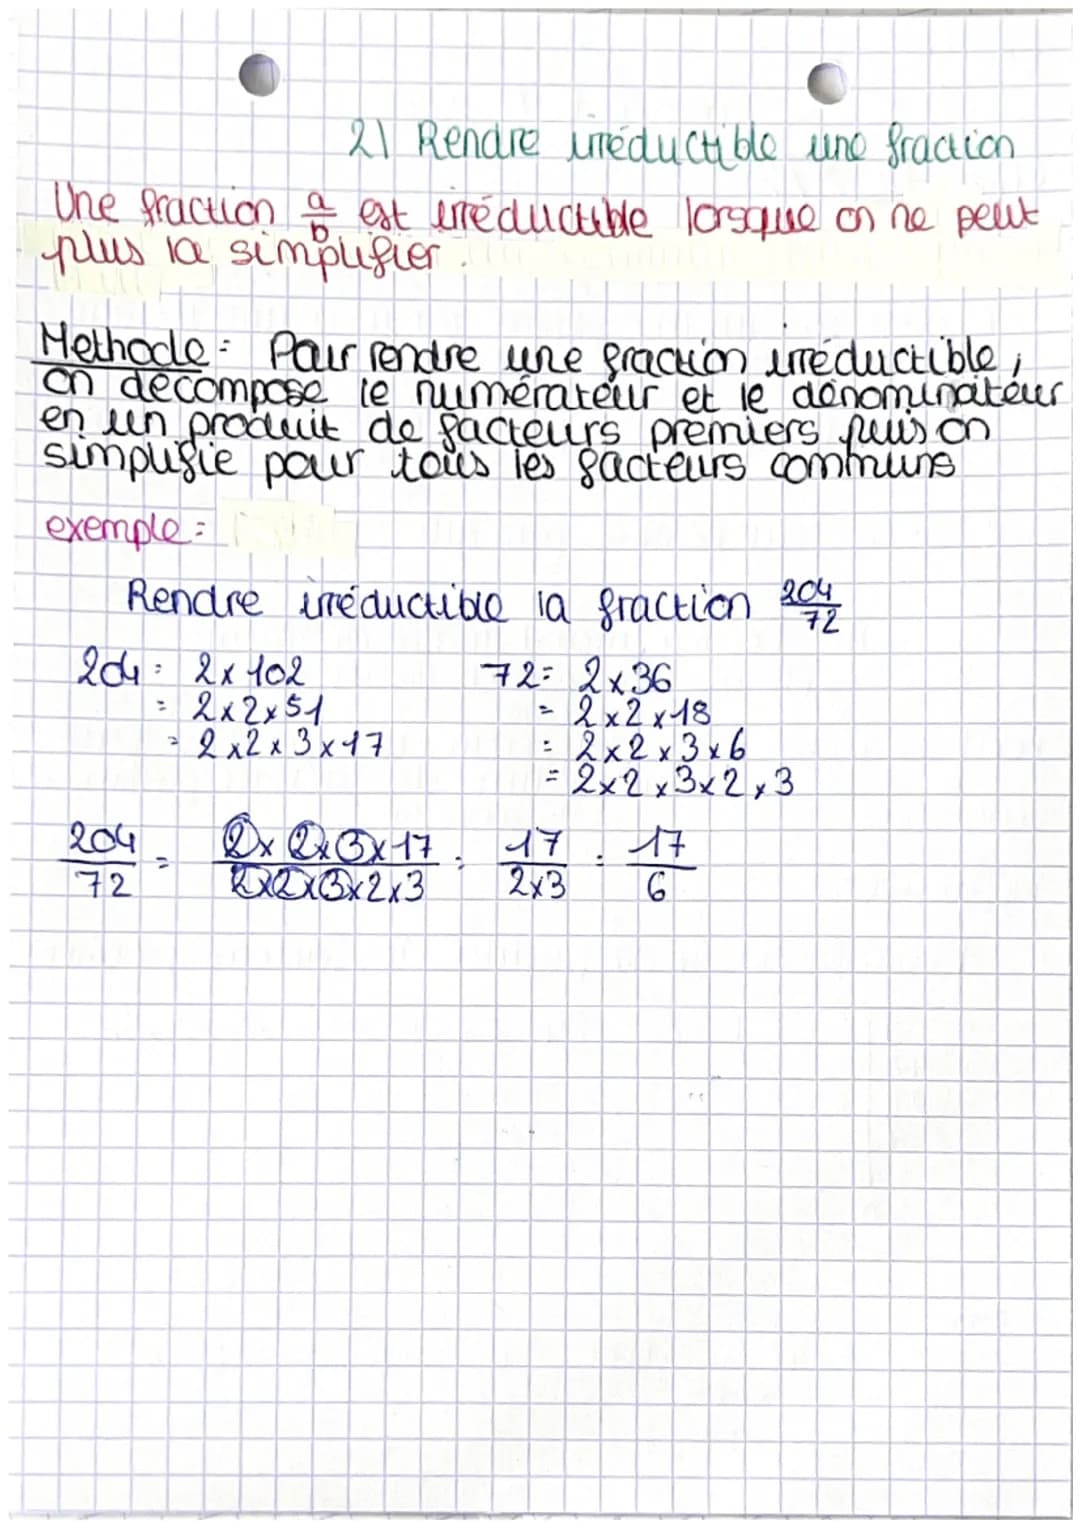 2) Rendre irréductible une fraction
Une fraction a/b est irréductible lorsque on ne peut
plus la simplifier.
Methode: Pour rendre une fraction irréductible,
on décompose le numérateur et le dénominateur
en un produit de facteurs premiers puis on
simplifie pour tous les facteurs communs
exemple:
Rendre irréductible la fraction 204/72
204 = 2 x 102
= 2 x 2 x 51
= 2 x 2 x 3 x 17
72 = 2 x 36
= 2 x 2 x 18
= 2 x 2 x 3 x 6
= 2 x 2 x 3 x 2 x 3
204/72 = 2 x 2 x 3 x 17 / 2 x 2 x 3 x 2 x 3 = 17 / 2 x 3 = 17/6